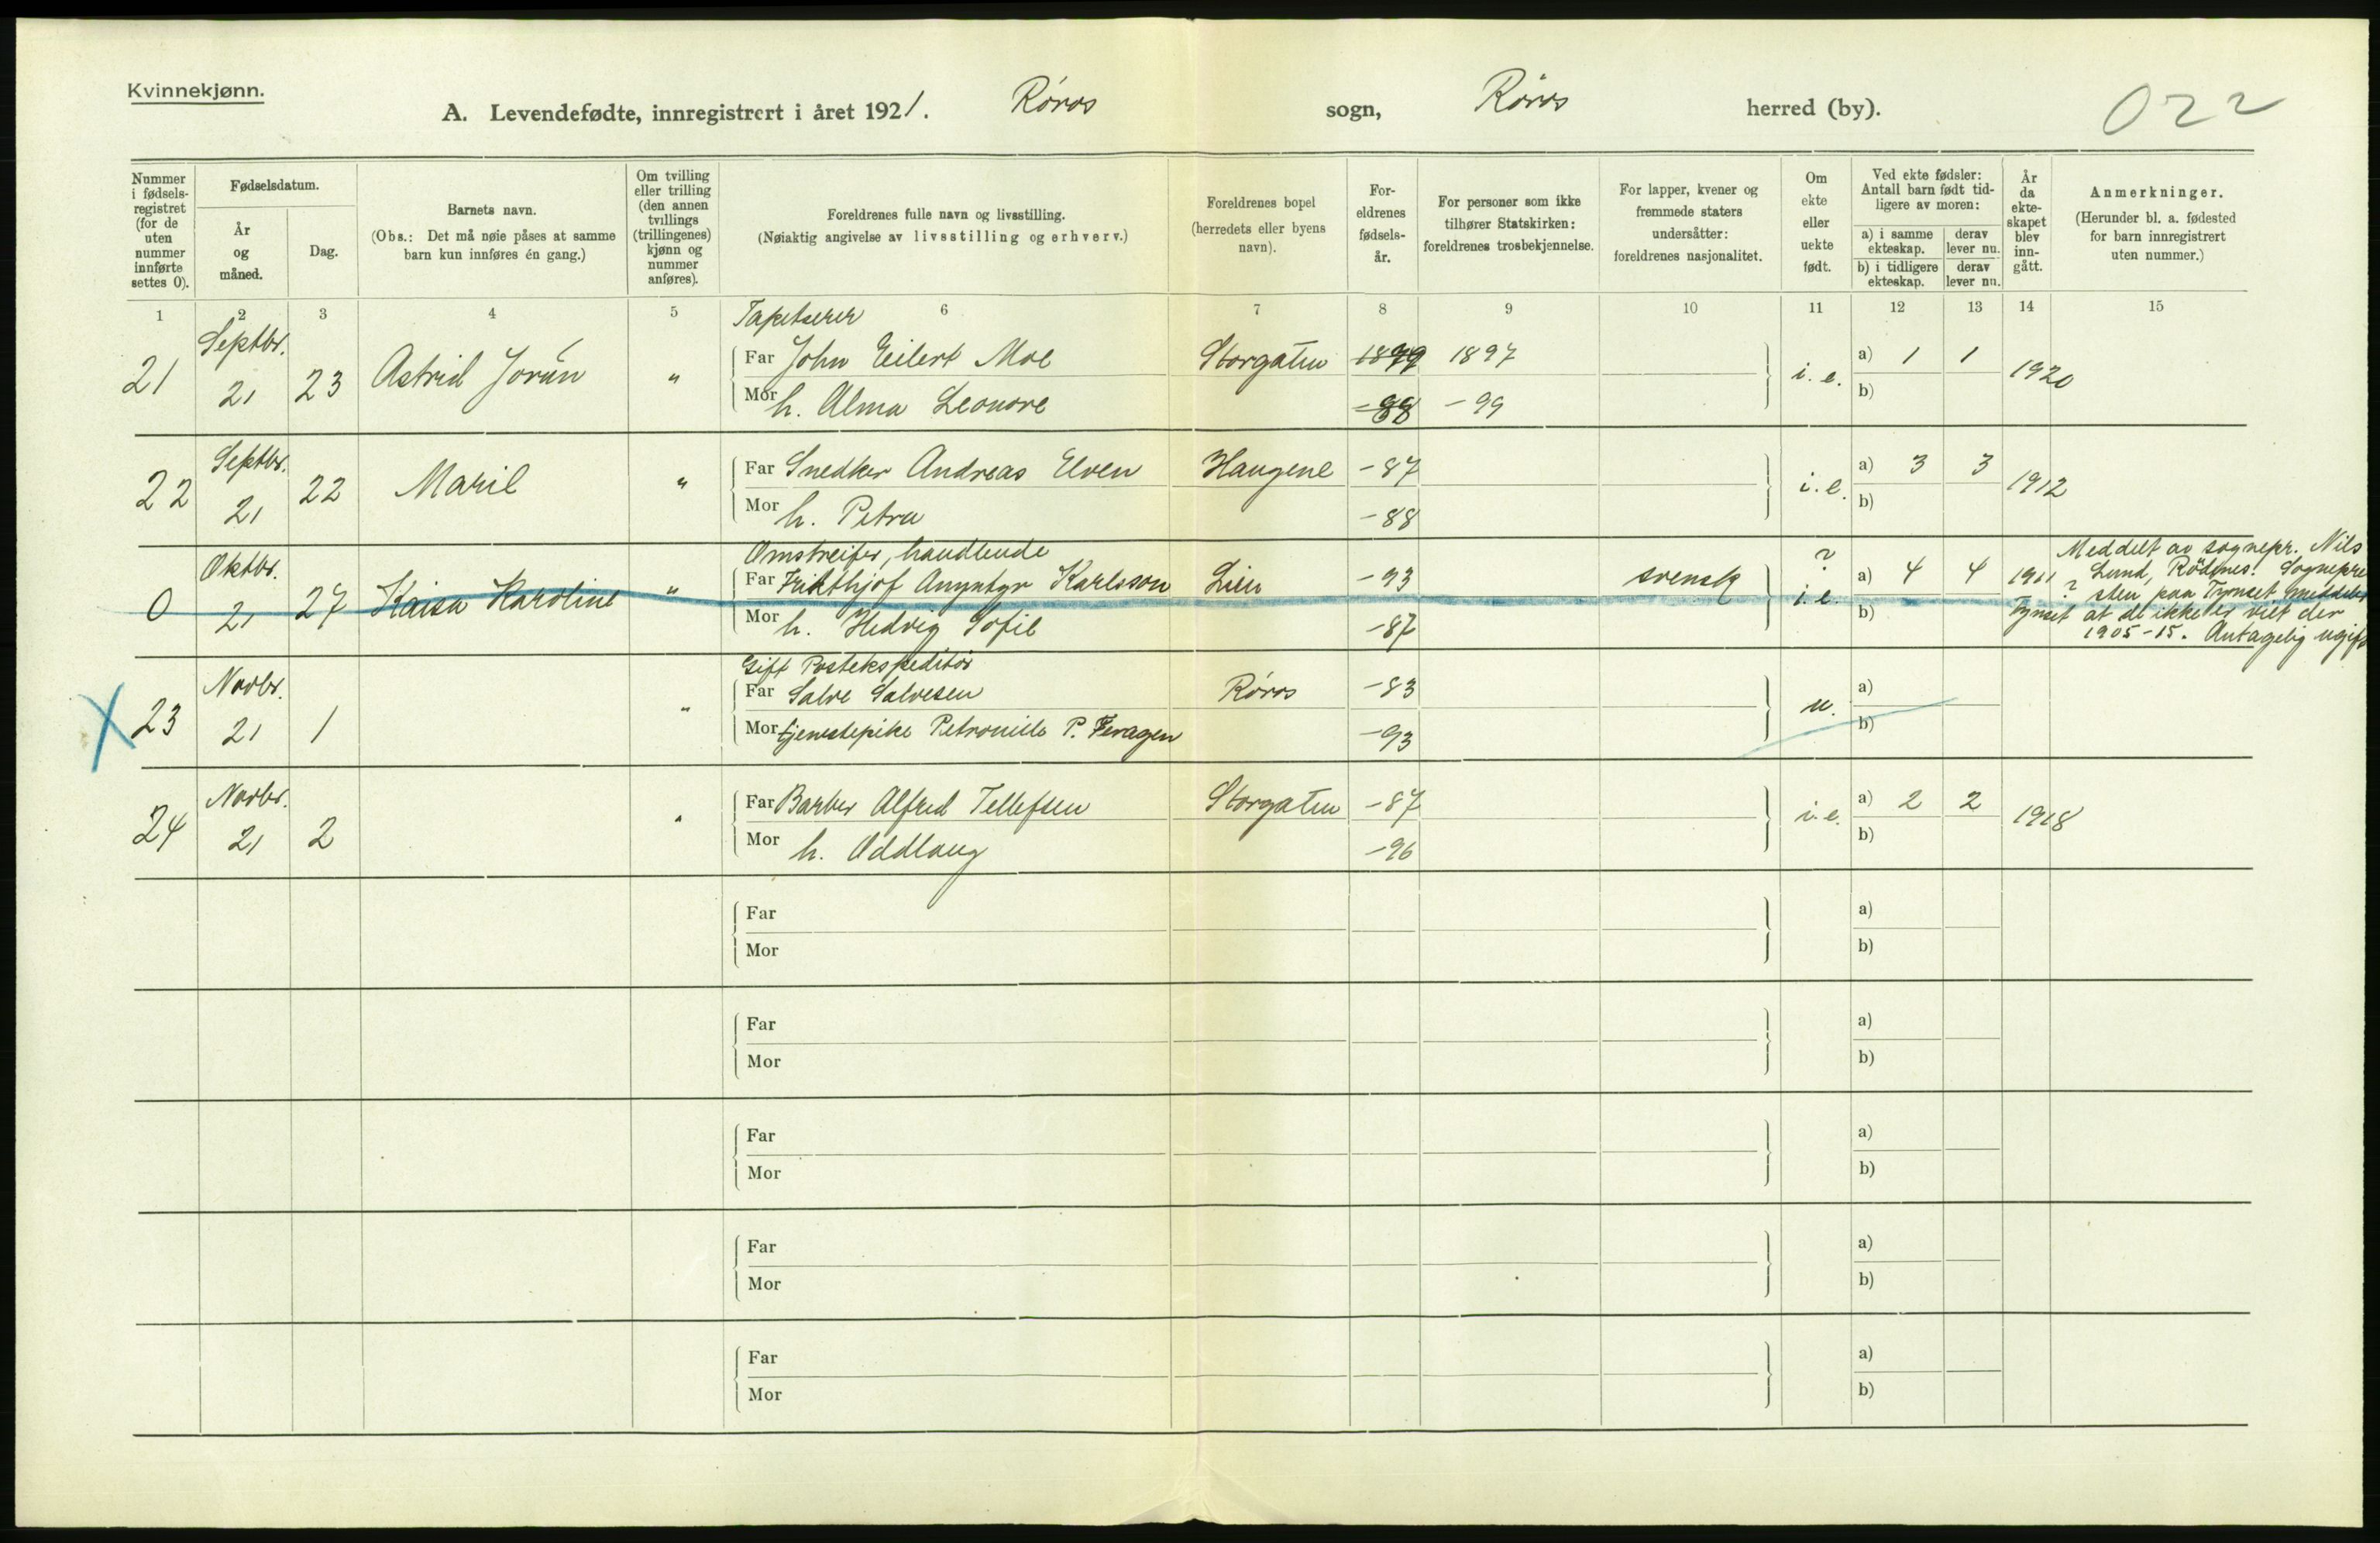 Kvinnekjønn.
A. Levendefødte, innregistrert i året 1921. Røros sogn, Røros herred (by).
022
Nummer i fødsels-registret (for de uten nummer innførte settes 0).
Fødselsdatum.
År og måned.
Dag.
Barnets navn.
(Obs.: Det må nøie påses at samme barn kun innføres én gang.)
Om tvilling eller trilling (den annen tvillings (trillingenes) kjønn og nummer anføres).
Foreldrenes fulle navn og livsstilling.
(Nøiaktig angivelse av livsstilling og erhverv.)
Foreldrenes bopel (herredets eller byens navn).
For-eldrenes fødsels-år.
For personer som ikke tilhører Statskirken: foreldrenes trosbekjennelse.
For lapper, kvener og fremmede staters undersåtter: foreldrenes nasjonalitet.
Om ekte eller uekte født.
Ved ekte fødsler: Antall barn født tid-ligere av moren:
a) i samme ekteskap.
derav lever nu.
b) i tidligere ekteskap.
derav lever nu.
År da ekte-skapet blev inn-gått.
Anmerkninger.
(Herunder bl. a. fødested for barn innregistrert uten nummer.)
1 2 3 4 5 6 7 8 9 10 11 12 13 14 15
Tapetserer
21 Septbr. 21 23 Astrid Jorún " Far John Eilert Moe Storgaten 1899 1897 i. e. a) 1 1 1920
Mor h. Alma Leonore -88 -99 b)
22 Septbr. 21 22 Marie " Far Snedker Andreas Elven Haugene -87 i. e. a) 3 3 1912
Mor h. Petra -88 b)
Omstreifer, handlende
0 Oktbr. 21 27 Kaisa Karoline " Far Frikthjof Angntyr Karlsson Lien -93 svensk ? i. e. a) 4 4 1911 ? Tynset
Mor h. Hedvig Sofie -87 b)
Meddelt av sognepr. Nils
Lund, Rödenes! Sognepre
sten paa Tynset meddeler
at de ikke er viet der
1905-15. Antagelig ugift
Gift Postekspeditør
23 Novbr. 21 1 " Far Salve Salvesen Røros -83 u. a)
Mor tjenestepike Petronille P. Feragen -93 b)
24 Novbr. 21 2 " Far Barber Alfred Tellefsen Storgaten -87 i. e. a) 2 2 1918
Mor h. Oddlaug -96 b)
Far a)
Mor b)
Far a)
Mor b)
Far a)
Mor b)
Far a)
Mor b)
Far a)
Mor b)